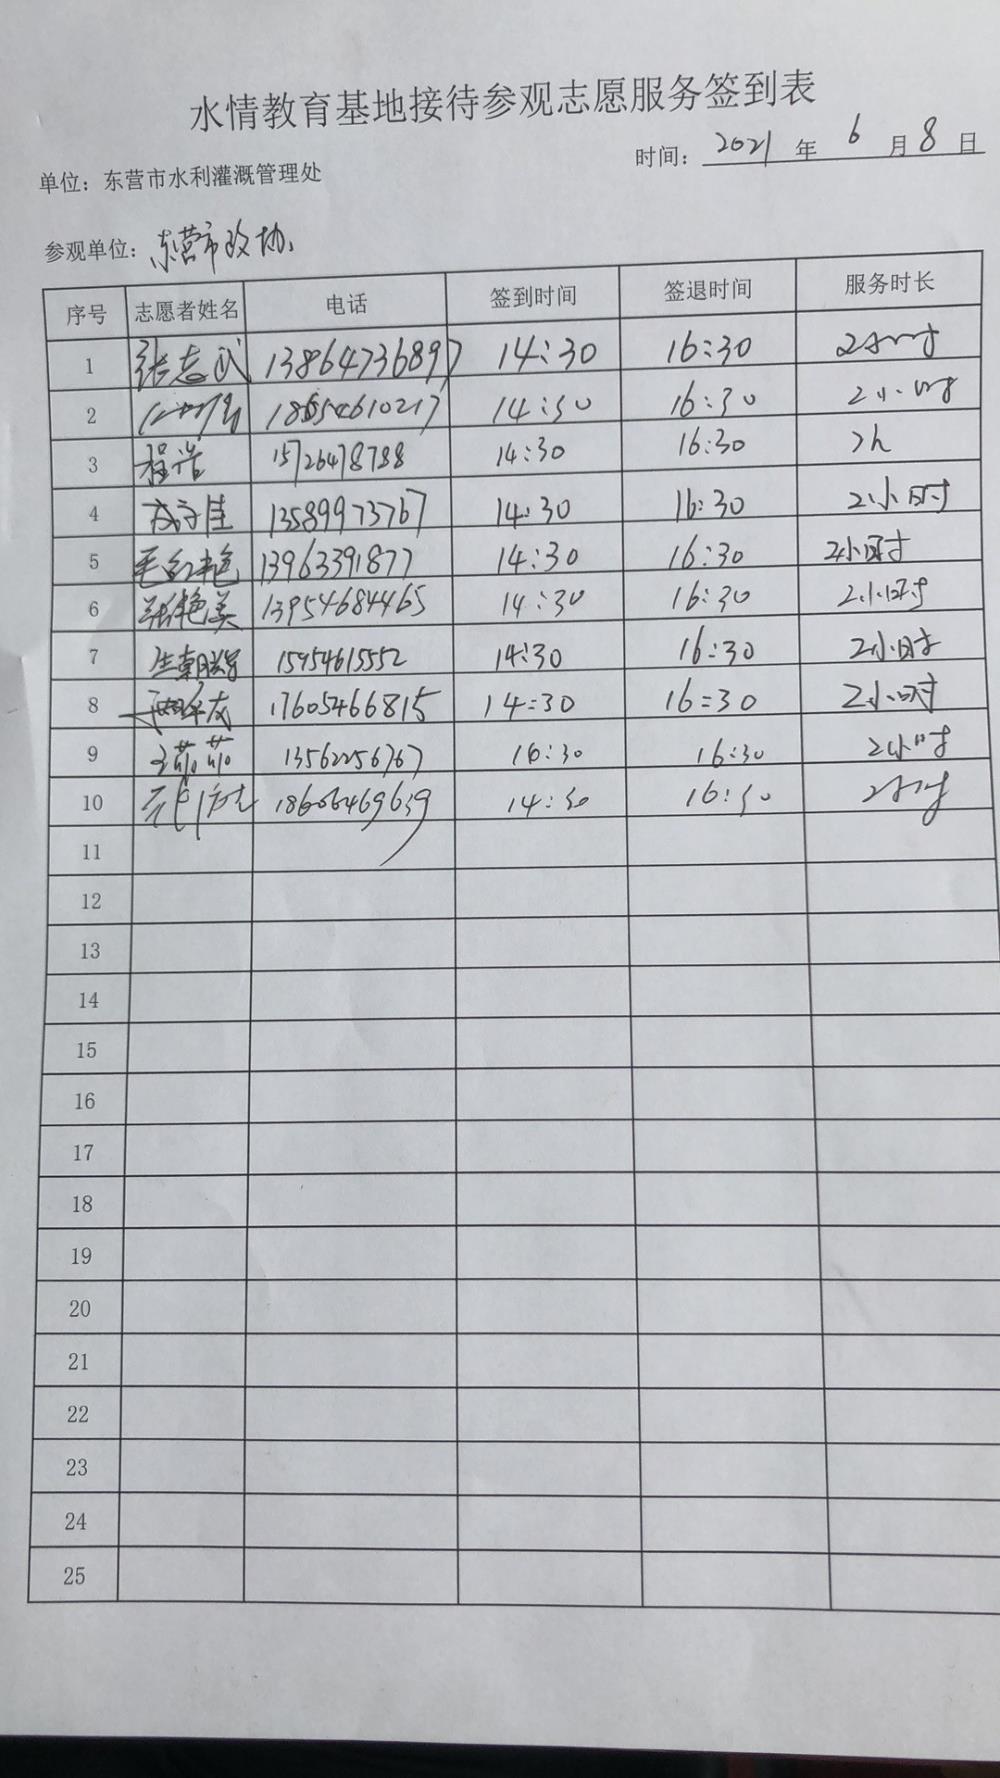 水情教育基地接待参观志愿服务签到表
时间： 2021 年 6 月 8 日
单位：东营市水利灌溉管理处
参观单位：东营市政协
序号 志愿者姓名 电话 签到时间 签退时间 服务时长
1 张志武 13864736897 14:30 16:30 2小时
2 18654610217 14:30 16:30 2小时
3 程浩 15726478788 14:30 16:30 2h
4 13589973767 14:30 16:30 2小时
5 毛红艳 13963391877 14:30 16:30 2小时
6 张艳美 13954684465 14:30 16:30 2小时
7 15954615552 14:30 16:30 2小时
8 17605466815 14:30 16:30 2小时
9 王茹茹 13562256767 16:30 16:30 2小时
10 18606469639 14:30 16:30 2小时
11
12
13
14
15
16
17
18
19
20
21
22
23
24
25